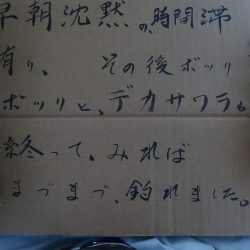 早朝沈黙の、時間滞
有り、その後ポツリ
ポツリと、デカサワラも
終って、みれば
まづまづ、釣れました。